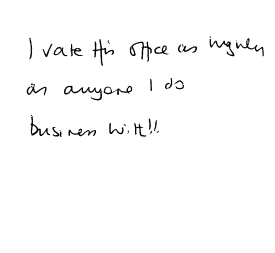 I rate this office as highly
as anyone I do
business with!!